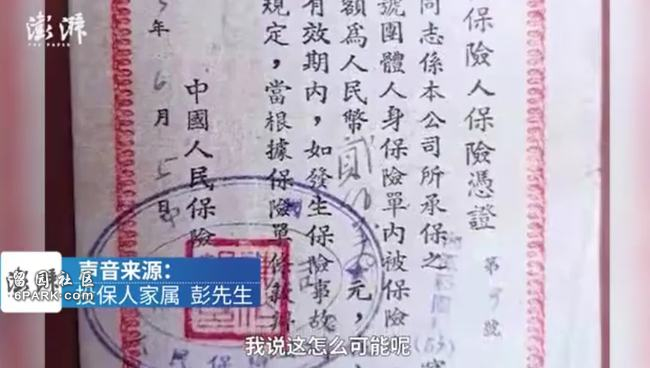 澎湃
THE PAPER
保險人保險憑證
第 號
同志係本公司所承保之
號團體人身保險單內被保險
額爲人民幣貳 元，
有效期內，如發生保險事故
規定，當根據保險單條款
中國人民保險
年6月5日
民保
溜园社区
6PARK.com
声音来源：
投保人家属 彭先生
我说这怎么可能呢